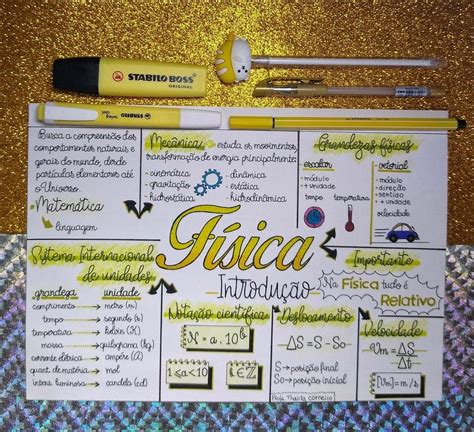 STABILO BOSS
ORIGINAL
STABILO
Busca a compreensão dos
comportamentos naturais e
gerais do mundo, desde
partículas elementares até
o Universo.
Matemática
linguagem
Mecânica: estuda os movimentos,
transformação de energia principalmente
· cinemática
· gravitação
· hidrostática
· dinâmica
· estática
· hidrodinâmica
Grandezas físicas
escalar
· módulo
+ unidade
tempo
temperatura
vetorial
· módulo
· direção
· sentido
+ unidade
velocidade
Física
Introdução
Sistema Internacional
de unidades
grandeza unidade
comprimento metro (m)
tempo segundo (s)
temperatura kelvin (K)
massa quilograma (kg)
corrente elétrica ampère (A)
quant. de matéria mol
intens. luminosa candela (cd)
Importante
Na Física tudo é
Relativo
Notação científica
N = a . 10^b
1 ≤ a < 10
b ∈ Z
Deslocamento
ΔS = S - So
S → posição final
So → posição inicial
Velocidade
Vm = ΔS
Δt
[Vm] = m/s